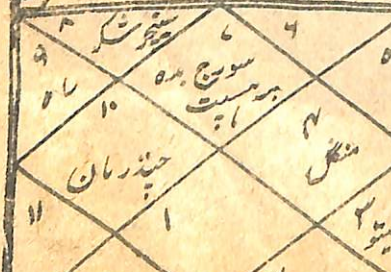 ۸ سنیچر شکر ۷ ۶ ۵
۹ راہ ۱۰ سورج بدھ
برہسپت
۴ منگل
چندرمان
۱۱ ۱ ۳